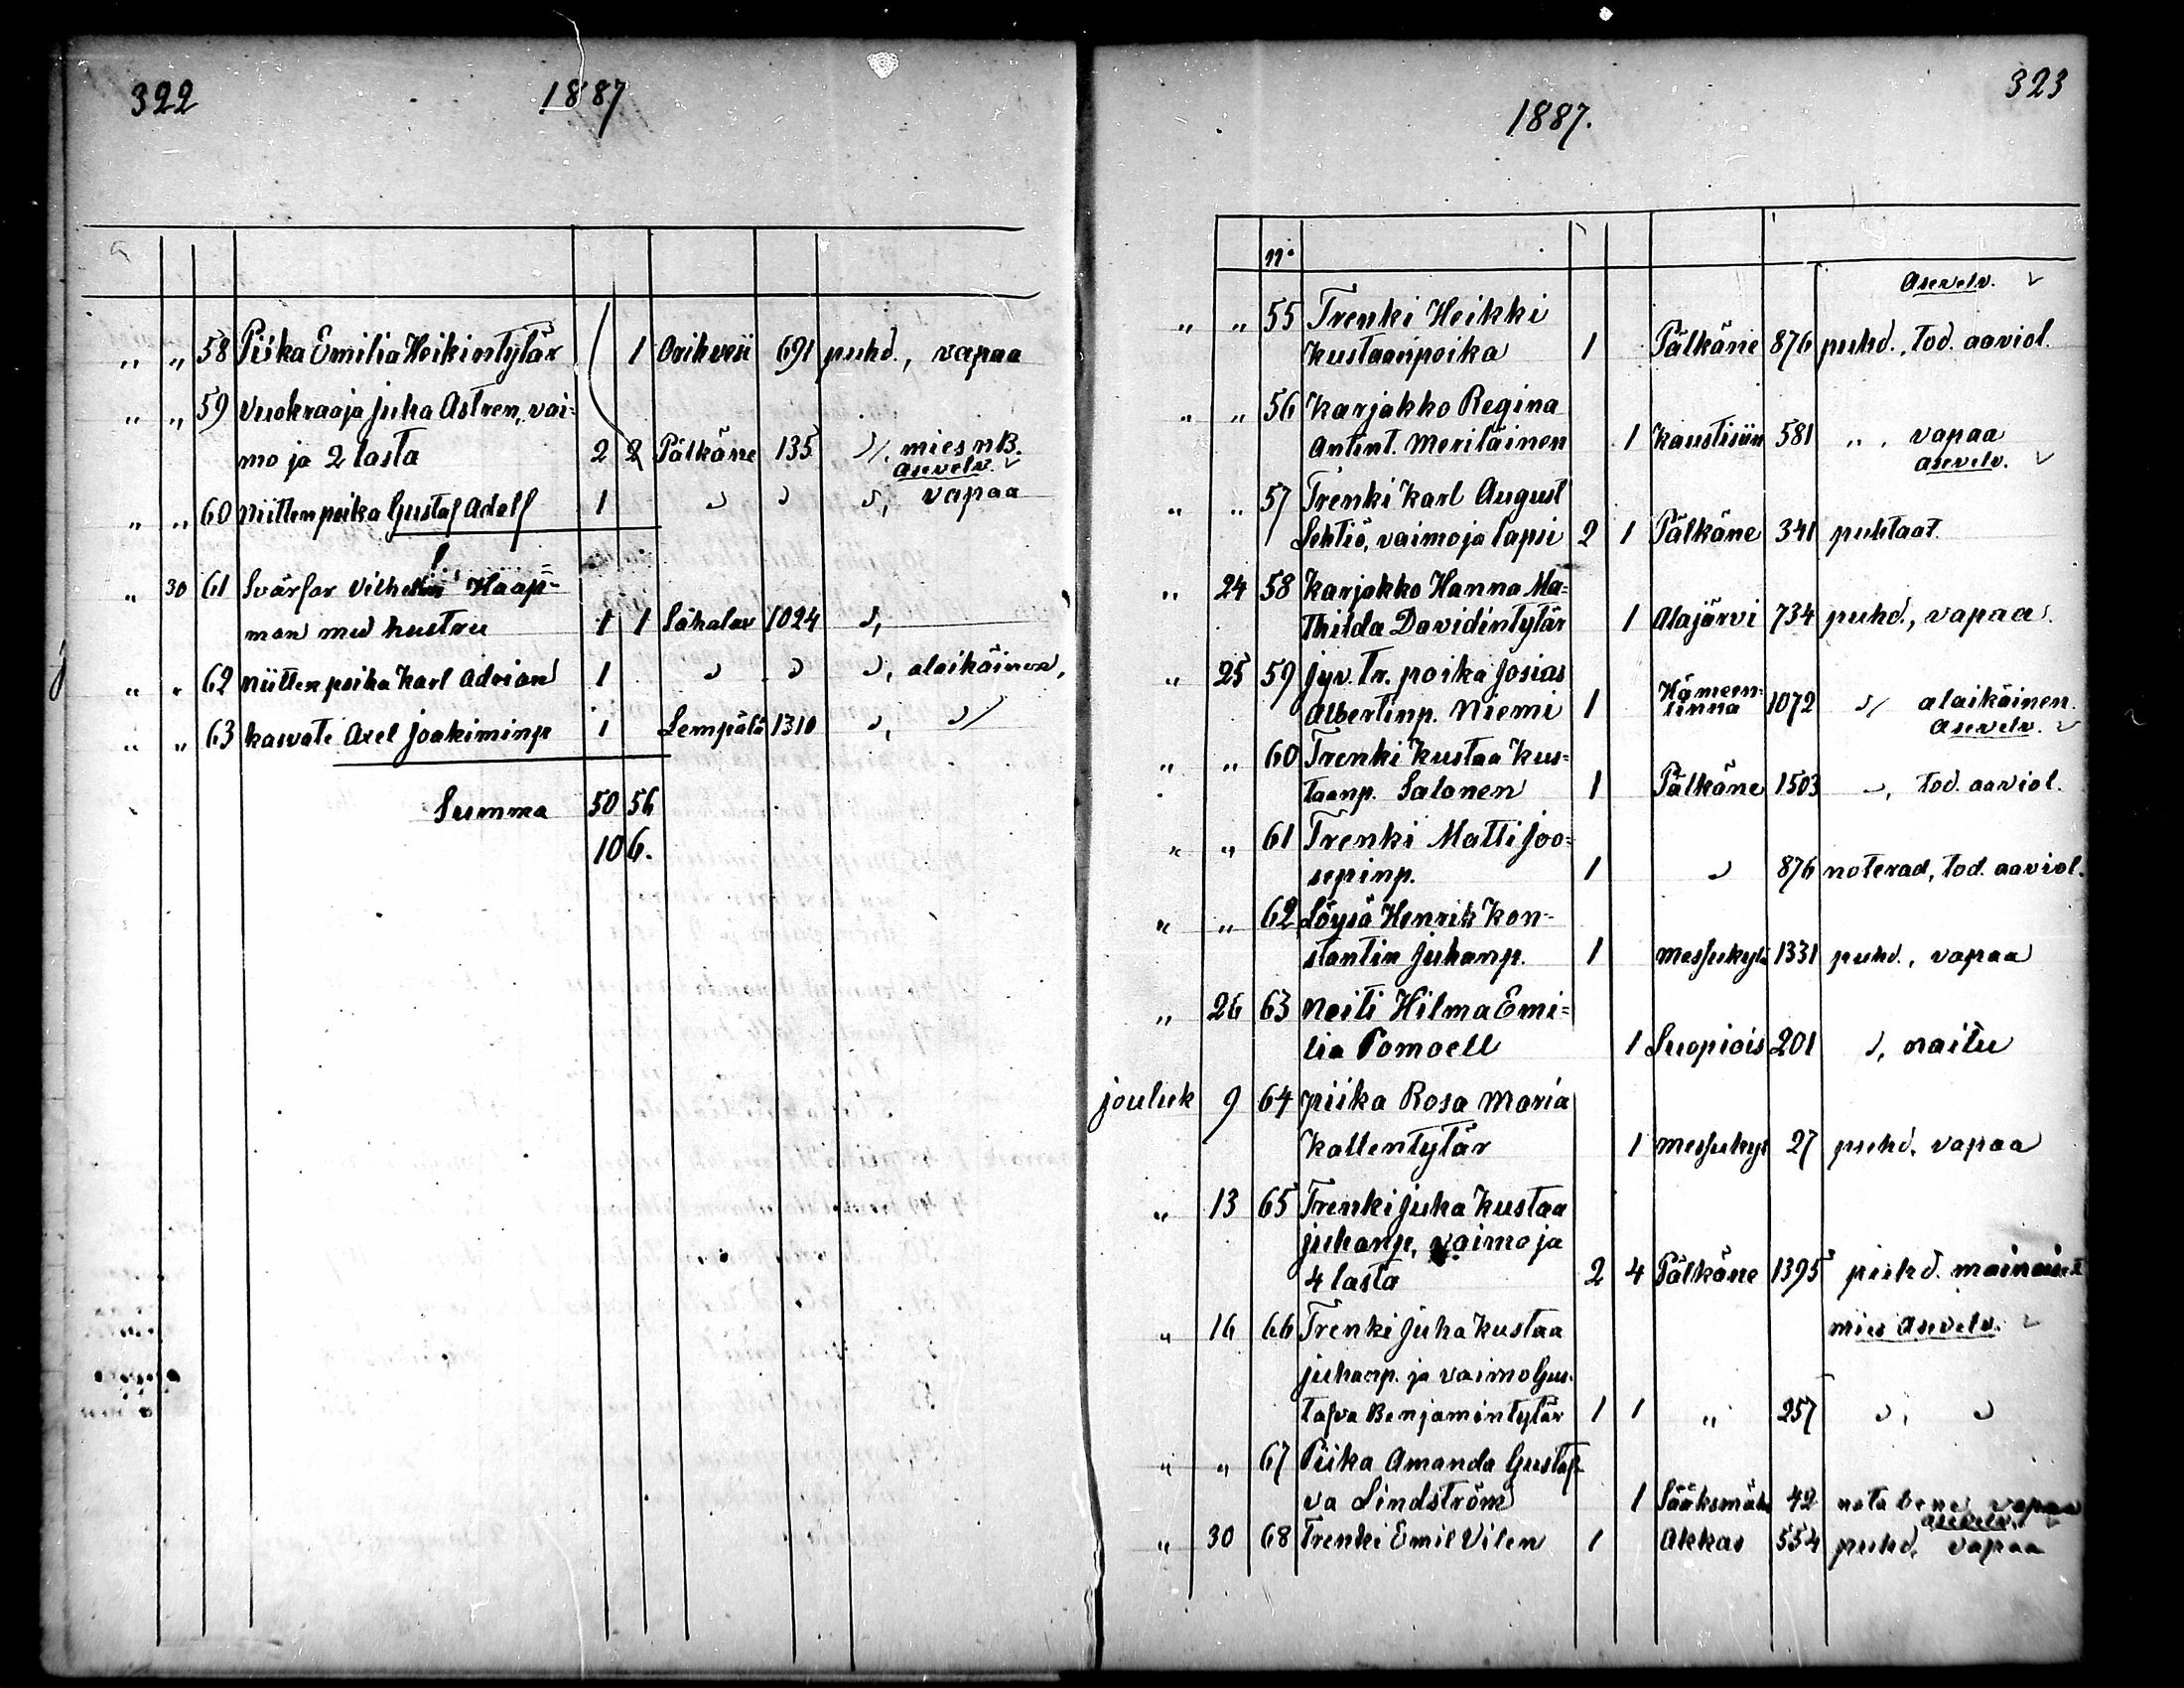 322 1887
„ „ 58 Piika Emilia Heikintytär 1 Orihvesi 691 puhd., vapaa
„ „ 59 Vuokraaja Juha Astren, vai-
mo ja 2 lasta 2 2 Pälkäne 135 „ mies nB.
asevelv.
„ „ 60 Niitten poika Gustaf Adolf 1 „ „ „, vapaa
„ 30 61 Svärfar Vilhelm Haap-
man med hustru 1 1 Sahalax 1024 „,
„ „ 62 Niitten poika Karl Adrian 1 „ „ „, alaikäinen,
„ „ 63 kasvati Axel Joakiminp 1 Lempälä 1310 „, „
Summa 50 56
106.
323
1887.
no
Asevelv.
„ „ 55 Trenki Heikki
Kustaanpoika 1 Pälkäne 876 puhd., tod. aaviol.
„ „ 56 Karjakko Regina
Antint. Meriläinen 1 Kaustisiin 581 „, vapaa
asevelv.
„ „ 57 Trenki Karl August
Lehtiö, vaimo ja lapsi 2 1 Pälkäne 341 puhtaat.
„ 24 58 Karjakko Hanna Ma=
thilda Davidintytär 1 Alajärvi 734 puhd., vapaa.
„ 25 59 jyv. tr. poika Josias
Albertinp. Niemi 1 Hämeen-
linna 1072 „ alaikäinen.
Asevelv.
„ „ 60 Trenki Kustaa Kus=
taanp. Salonen 1 Pälkäne 1503 „, tod. aaviol.
„ „ 61 Trenki Matti Joo=
sepinp. 1 „ 876 noterad, tod. aaviol.
„ „ 62 Löysä Henrik Kon-
stantin Juhanp. 1 Messukylä 1331 puhd., vapaa
„ 26 63 Neiti Hilma Emi=
lia Pomoell 1 Luopiois 201 „, naitu
jouluk 9 64 piika Rosa Maria
Kallentytär 1 Messukyl 27 puhd. vapaa
„ 13 65 Trenki Juha Kustaa
juhanp, vaimo ja
4 lasta 2 4 Pälkäne 1395 puhd.
„ 16 66 Trenki Juha Kustaa mies asevelv.
juhanp. ja vaimo Gus-
tafva Benjamintytär 1 1 „ 257 „, „
„ „ 67 Piika Amanda Gustaf-
va Lindström 1 Sääksmäki 42 nota bene vapaa
asevelv.
„ 30 68 Trenki Emil Vilen 1 Akkas 554 puhd, vapaa